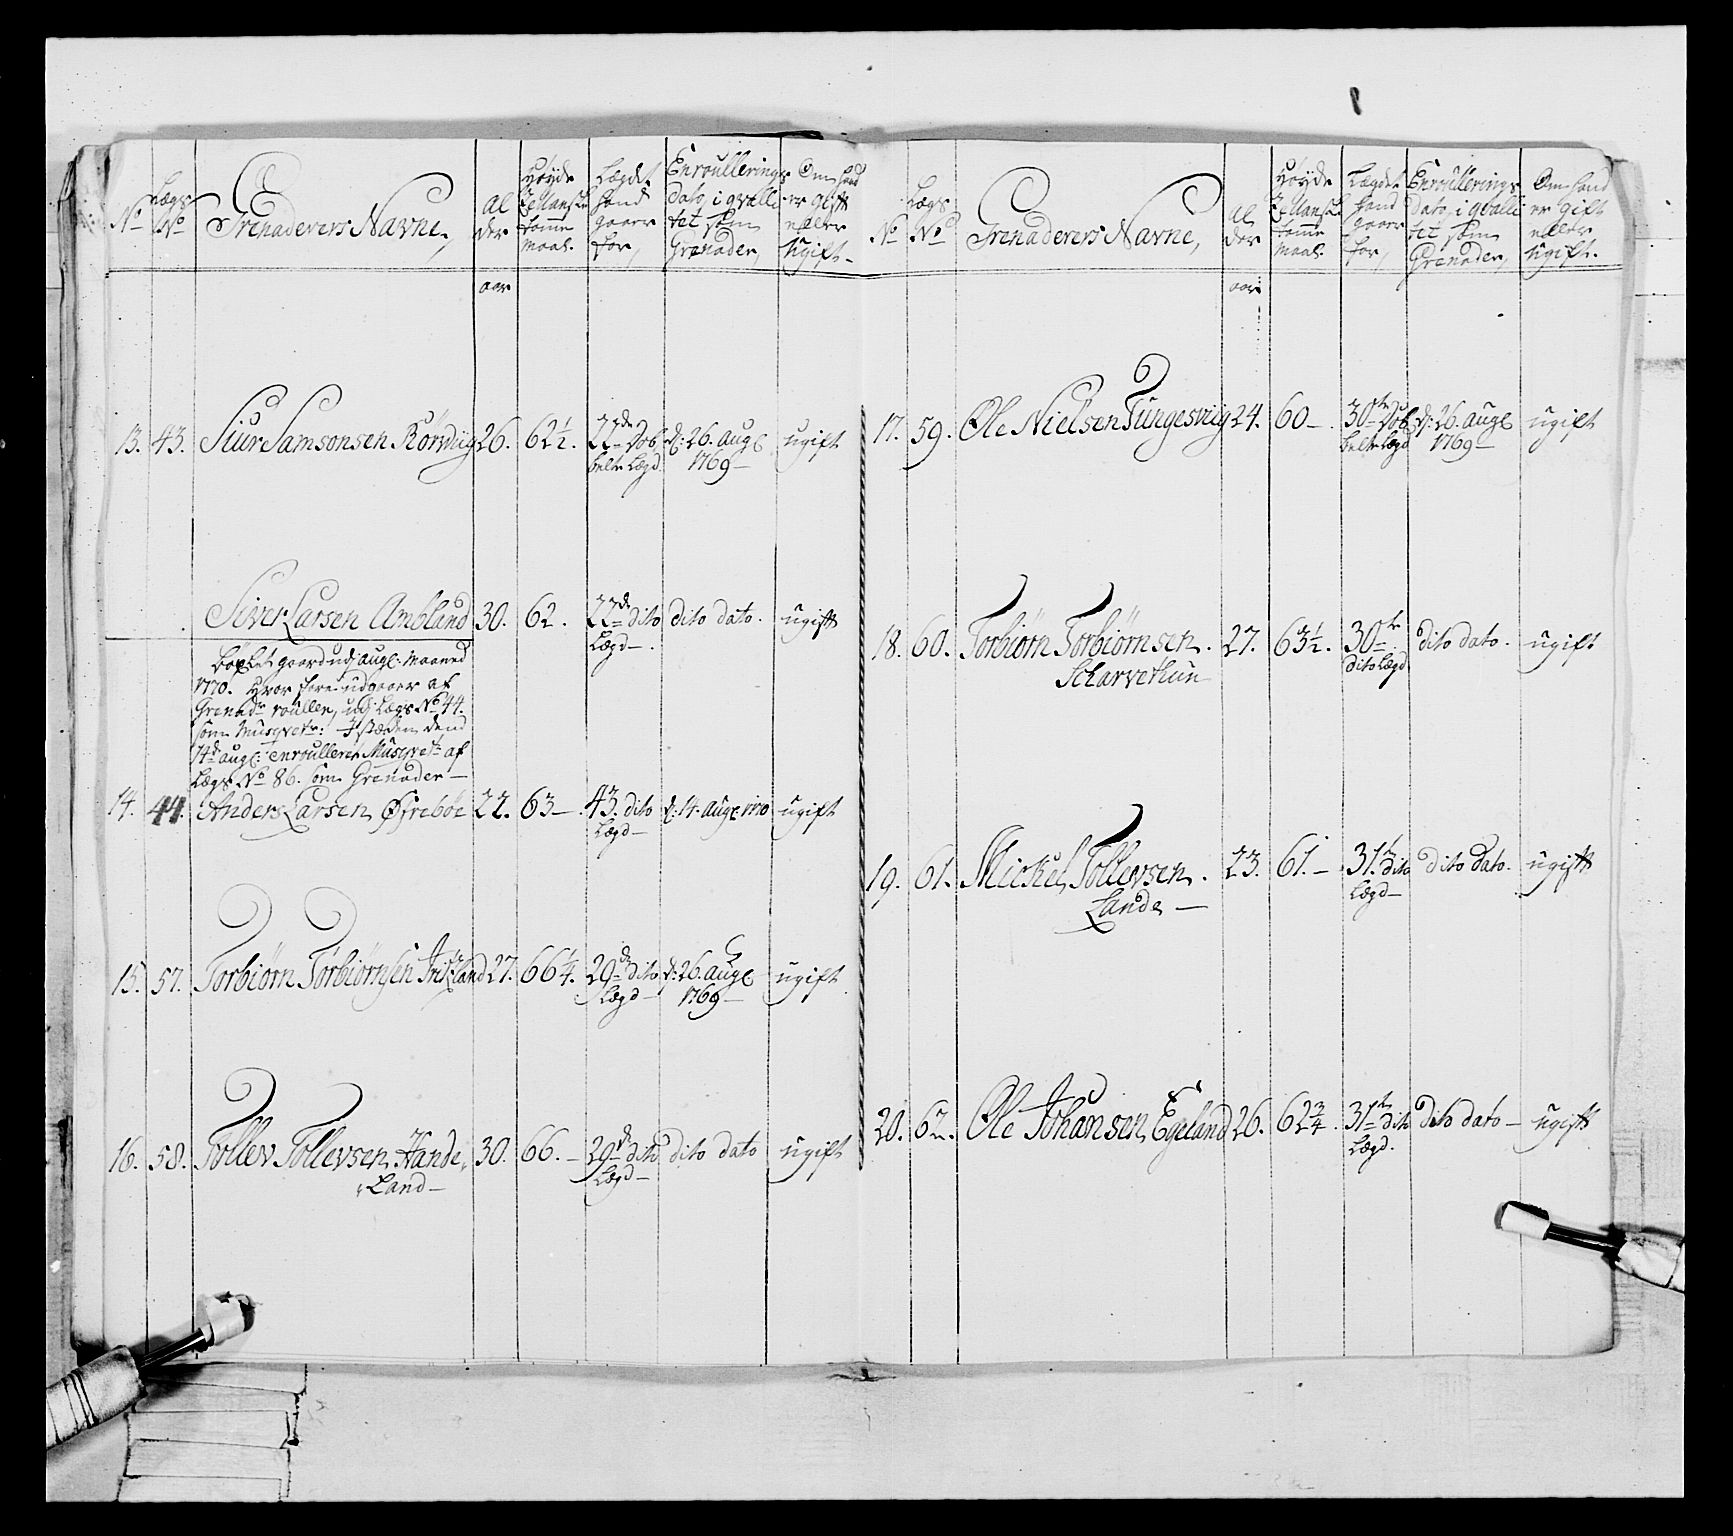 No Lægs No Grenaderers Navne, Al der Høyde Tomme Maal. Lægdet hand gaaer for, Enroullerings Dato, i qvalli tet som Grenader, Om hand er gift eller ugift.
aar
13. 43. Siur Samsonsen Rörviig 26. 62½. 22de Dob belte Lægd d: 26. Augl 1769 ugift
Siver Larsen Ambland 30. 62. 22de dito Lægd dito dato. ugift
gaard udj Augl: Maaned
1770. Hvor fore udgaaer af
Grenadr roullen, udj Lægs No 44.
som Musqvetr: I stæden dend
14de Augl: enroulleret Musqvetr af
Lægs No 86. som Grenader
14. 44. Anders Larsen Øfrebøe 22. 63 43. dito Lægd d: 14. Augl: 1770 ugift
15. 57. Torbiörn Törbiörnsen 27. 66¼. 29de dito Lægd d: 26. Augl 1769 ugift
16. 58. Tollev Tollevsen Hande„ 30. 66. 29de dito Lægd dito dato ugift
„Land
No Lægs No Grenaderers Navne, Al der Høyde Tomme Maal. Lægdet hand gaaer for, Enroullerings Dato, i qvalli tet som Grenader, Om hand er gift eller ugift.
aar
17. 59. Ole Nielsen Tungesviig 24. 60 30te Dob belte Lægd d: 26. Augl 1769 ugift
18. 60. Torbiörn Torbiörnsen. 27. 63½. 30te dito Lægd dito dato. ugift
Scharvehun
19. 61. Mickel Tollevsen. 23. 61. 31te dito Lægd dito dato. ugift
Lande
20. 62. Ole Johansen Egeland 26. 62¾. 31te dito Lægd. dito dato ugift